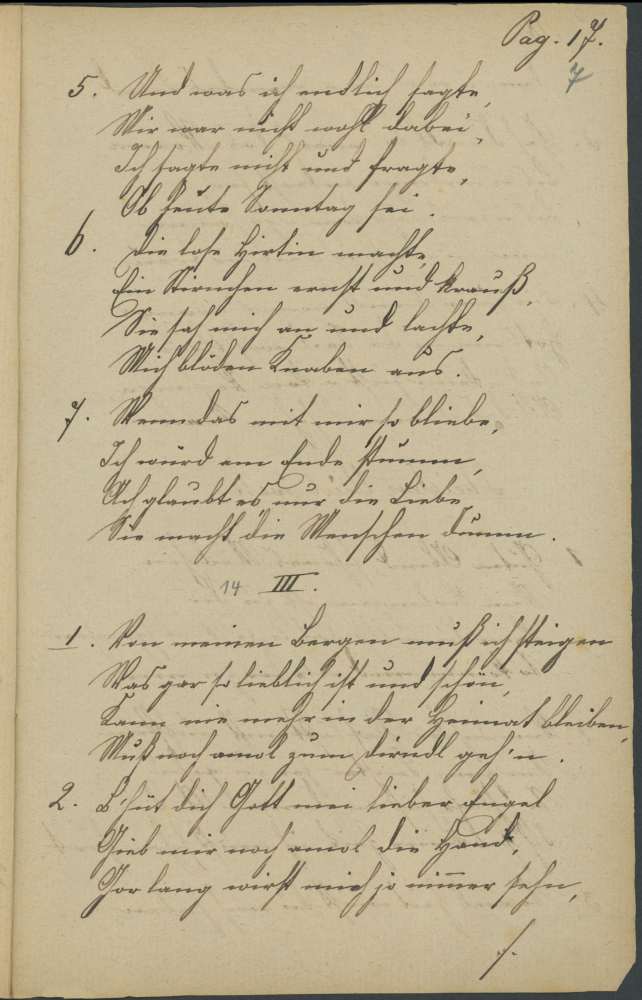 Pag. 17.
7
5. Und was ich endlich sagte,
Mir war nicht wohl dabei,
Ich sagte nichts und fragte,
Ob heute Sonntag sei.
6. Die lose Hirtin machte,
Ein Stirnchen ernst und krauß,
Sie sah mich an und lachte,
Mich blöden Knaben aus.
7. Wenn das mit mir so bliebe,
Ich würd am Ende stumm,
Ach glaubt es nur die Liebe
Sie macht die Menschen dumm.
14 III.
1. Von meinen Bergen muß ich steigen
Was gar so lieblich ist und schön,
Kann nie mehr in der Heimat bleiben,
Muß noch amol zum Dirndl geh'n.
2. B'hüt dich Gott mei lieber Engel
Gieb mir noch amol die Hand,
Gor lang wirst mich jo nimmer sehn,
f.